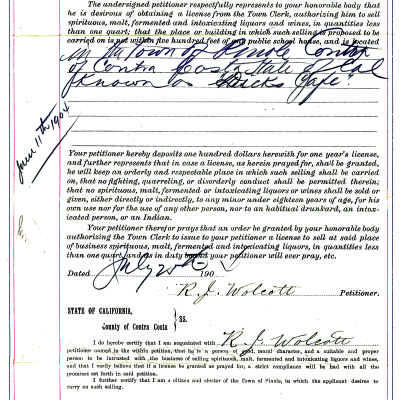 The undersigned petitioner respectfully represents to your honorable body that
he is desirous of obtaining a license from the Town Clerk, authorizing him to sell
spirituous, malt, fermented and intoxicating liquors and wines, in quantities less
than one quart; that the place or building in which such selling is proposed to be
carried on is not within five hundred feet of any public school house, and is located
in the Town of Pinole County
of Contra Costa State of Cal
known as Cafe.
June 11th, 1904
Your petitioner hereby deposits one hundred dollars herewith for one year's license,
and further represents that in case a license, as herein prayed for, shall be granted,
he will keep an orderly and respectable place in which such selling shall be carried
on, that no fighting, quarreling, or disorderly conduct shall be permitted therein;
that no spirituous, malt, fermented or intoxicating liquors or wines shall be sold or
given, either directly or indirectly, to any minor under eighteen years of age, for his
own use nor for the use of any other person, nor to an habitual drunkard, an intox-
icated person, or an Indian.
Your petitioner therefor prays that an order be granted by your honorable body
authorizing the Town Clerk to issue to your petitioner a license to sell at said place
of business spirituous, malt, fermented and intoxicating liquors, in quantities less
than one quart, and as in duty bound your petitioner will ever pray, etc.
Dated July 190
R. J. Wolcott
Petitioner.
STATE OF CALIFORNIA,
County of Contra Costa } ss.
I do hereby certify that I am acquainted with R. J. Wolcott
petitioner named in the within petition, that he is a person of good moral character, and a suitable and proper
person to be intrusted with the business of selling spirituous, malt, fermented and intoxicating liquors and wines,
and that I verily believe that if a license be granted as prayed for, a strict compliance will be had with all the
promises set forth in said petition.
I further certify that I am a citizen and elector of the Town of Pinole, in which the applicant desires to
carry on such selling.